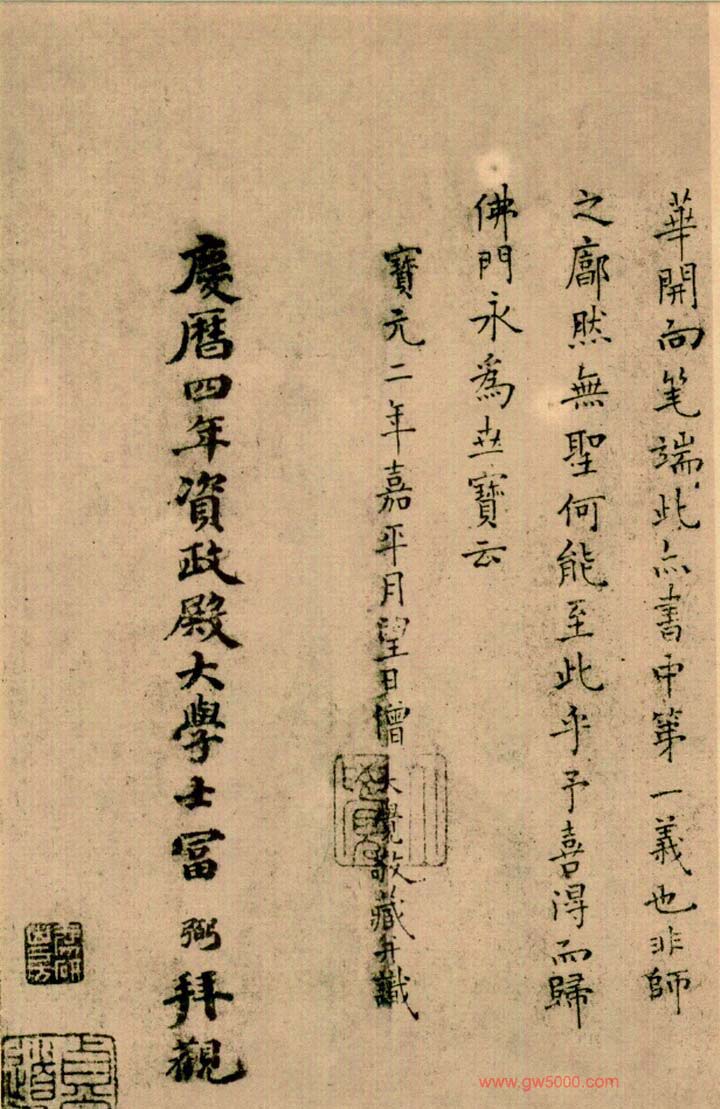 華開向笔端此亦書中第一義也非師
之廓然無聖何能至此乎予喜得而歸
佛門永為世寶云
寶元二年嘉平月望日僧大覺敬藏并識
慶曆四年資政殿大學士富弼拜觀
www.gw5000.com